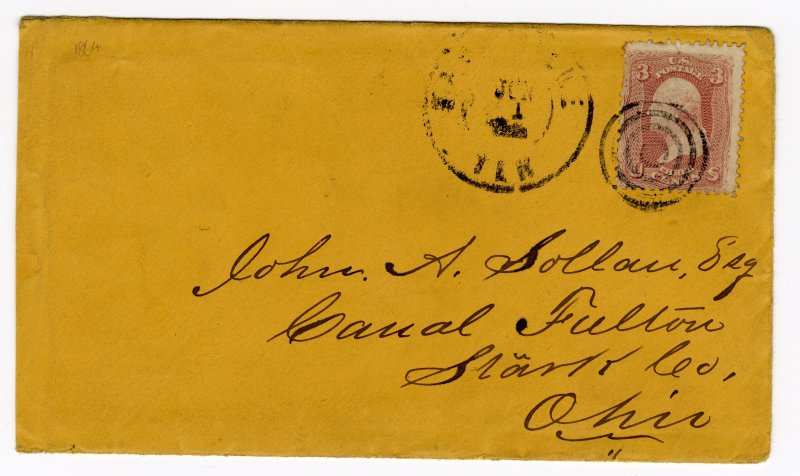 1864
JUN
1
TEN
U.S.
POSTAGE
3 3
U S
CENTS
John. A. Sollau, Esq
Canal Fulton
Stark Co,
Ohio